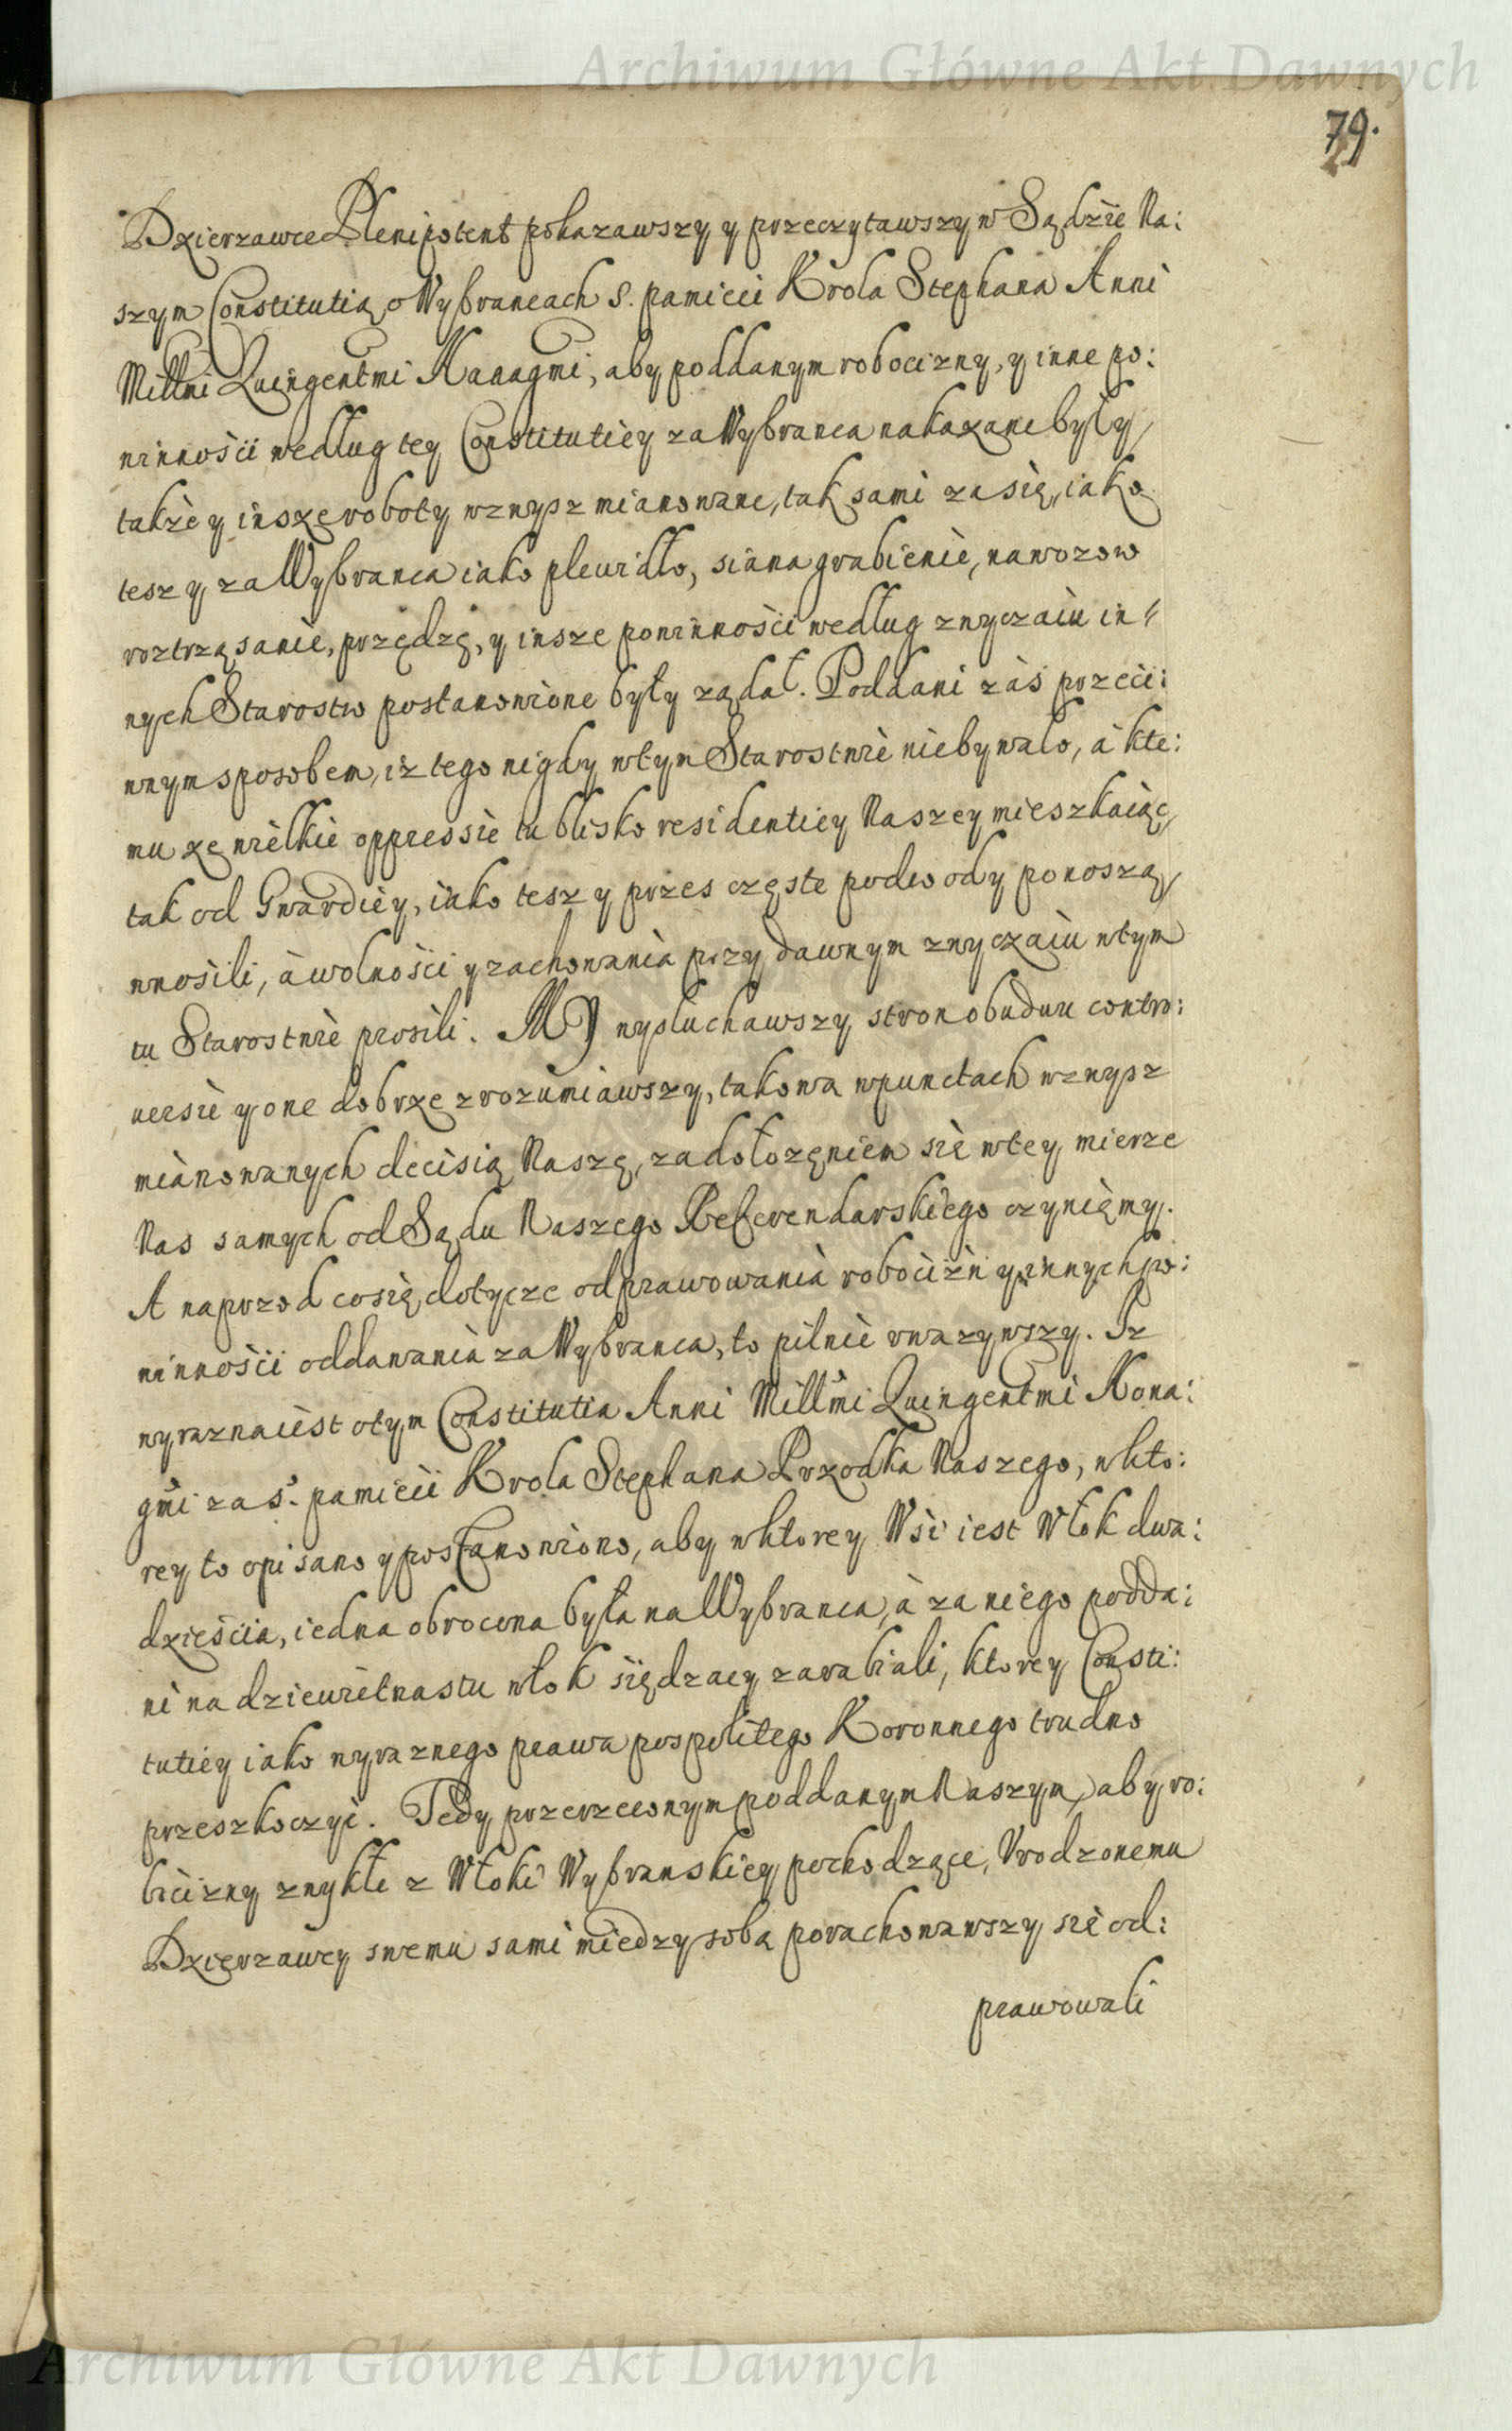 Archiwum Główne Akt Dawnych
79.
Dzierzawce Plenipotent pokazawszy y przeczytawszy w Sądzie Na:
szym Constitutią o Wybrancach S. pamięci Krola Stephana Anni
Millmi Quingentmi Nonagmi, aby poddanym robocizny, y inne po:
winności według tey Constitutiey za Wybranca nakazane były,
także y insze roboty wzwysz mianowane, tak sami za się, iako
tesz y za Wybranca iako plewidło, siana grabienie, nawozow
roztrząsanie, przędzę, y insze powinności według zwyczaiu in=
nych Starostw postanowione były ządał. Poddani záś przeci:
wnym sposobem, iz tego nigdy w tym Starostwie niebywało, á kte:
mu ze wielkie oppressie tu blisko residentiey Naszey mieszkaiąc,
tak od Gwardiey, iako tesz y przes częste podwody ponoszą,
wnosili, á wolności y zachowania przy dawnym zwyczaiu w tym
tu Starostwie prosili. MY wysłuchawszy stron obudwu contro:
uersie y one dobrze zrozumiawszy, takową w punctach wzwysz
mianowanych decisią Naszę, za dołozęniem się w tey mierze
Nas samych od Sądu Naszego Referendarskiego czyniemy.
A naprzod co się dotycze odprawowania robocizn y innych po:
winności oddawania za Wybranca, to pilnie vwazywszy. Iz
wyrazna iest o tym Constitutia Anni Millmi Quingentmi Nona:
gmi za ś. pamięci Krola Stephana Przodka Naszego, w kto:
rey to opisano y postanowiono, aby w ktorey Wsi iest Włok dwa:
dzieścia, iedna obrocona była na Wybranca, á za niego podda:
ni na dziewiętnastu włok siędzący zarabiali, ktorey Consti:
tutiey iako wyraznego prawa pospolitego Koronnego trudno
przeszkoczyć. Tedy przerzeconym poddanym Naszym, aby ro:
bocizny zwykłe z Włoki Wybranskiey pochodzące, Vrodzonemu
Dzierzawcy swemu sami między sobą porachowawszy się od:
prawowali
Archiwum Główne Akt Dawnych